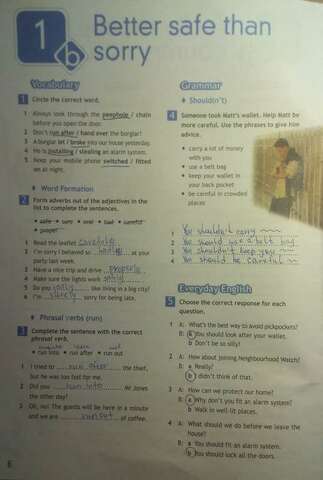 1b
Better safe than
sorry
Vocabulary
1 Circle the correct word.
1 Always look through the peephole / chain
before you open the door.
2 Don't run after / hand over the burglar!
3 A burglar let / broke into our house yesterday.
4 He is installing / stealing an alarm system.
5 Keep your mobile phone switched / fitted
on at night.
Word Formation
2 Form adverbs out of the adjectives in the
list to complete the sentences.
• safe • sure • real • bad • careful
• proper
1 Read the leaflet carefully
2 I'm sorry I behaved so badly at your
party last week.
3 Have a nice trip and drive properly
4 Make sure the lights work safely
5 Do you really like living in a big city?
6 I'm surely sorry for being late.
Phrasal verbs (run)
3 Complete the sentence with the correct
phrasal verb.
• run into • run after • run out
1 I tried to run after the thief,
but he was too fast for me.
2 Did you run into Mr Jones
the other day?
3 Oh, no! The guests will be here in a minute
and we are run out of coffee.
6
Grammar
Should(n't)
4 Someone took Matt's wallet. Help Matt be
more careful. Use the phrases to give him
advice.
• carry a lot of money
with you
• use a belt bag
• keep your wallet in
your back pocket
• be careful in crowded
places
1 You shouldn't carry
2 You should use a belt bag
3 You shouldn't keep you
4 You should be careful
Everyday English
5 Choose the correct response for each
question.
1 A: What's the best way to avoid pickpockets?
B: a You should look after your wallet.
b Don't be so silly!
2 A: How about joining Neighbourhood Watch?
B: a Really?
b I didn't think of that.
3 A: How can we protect our home?
B: a Why don't you fit an alarm system?
b Walk in well-lit places.
4 A: What should we do before we leave the
house?
B: a You should fit an alarm system.
b You should lock all the doors.